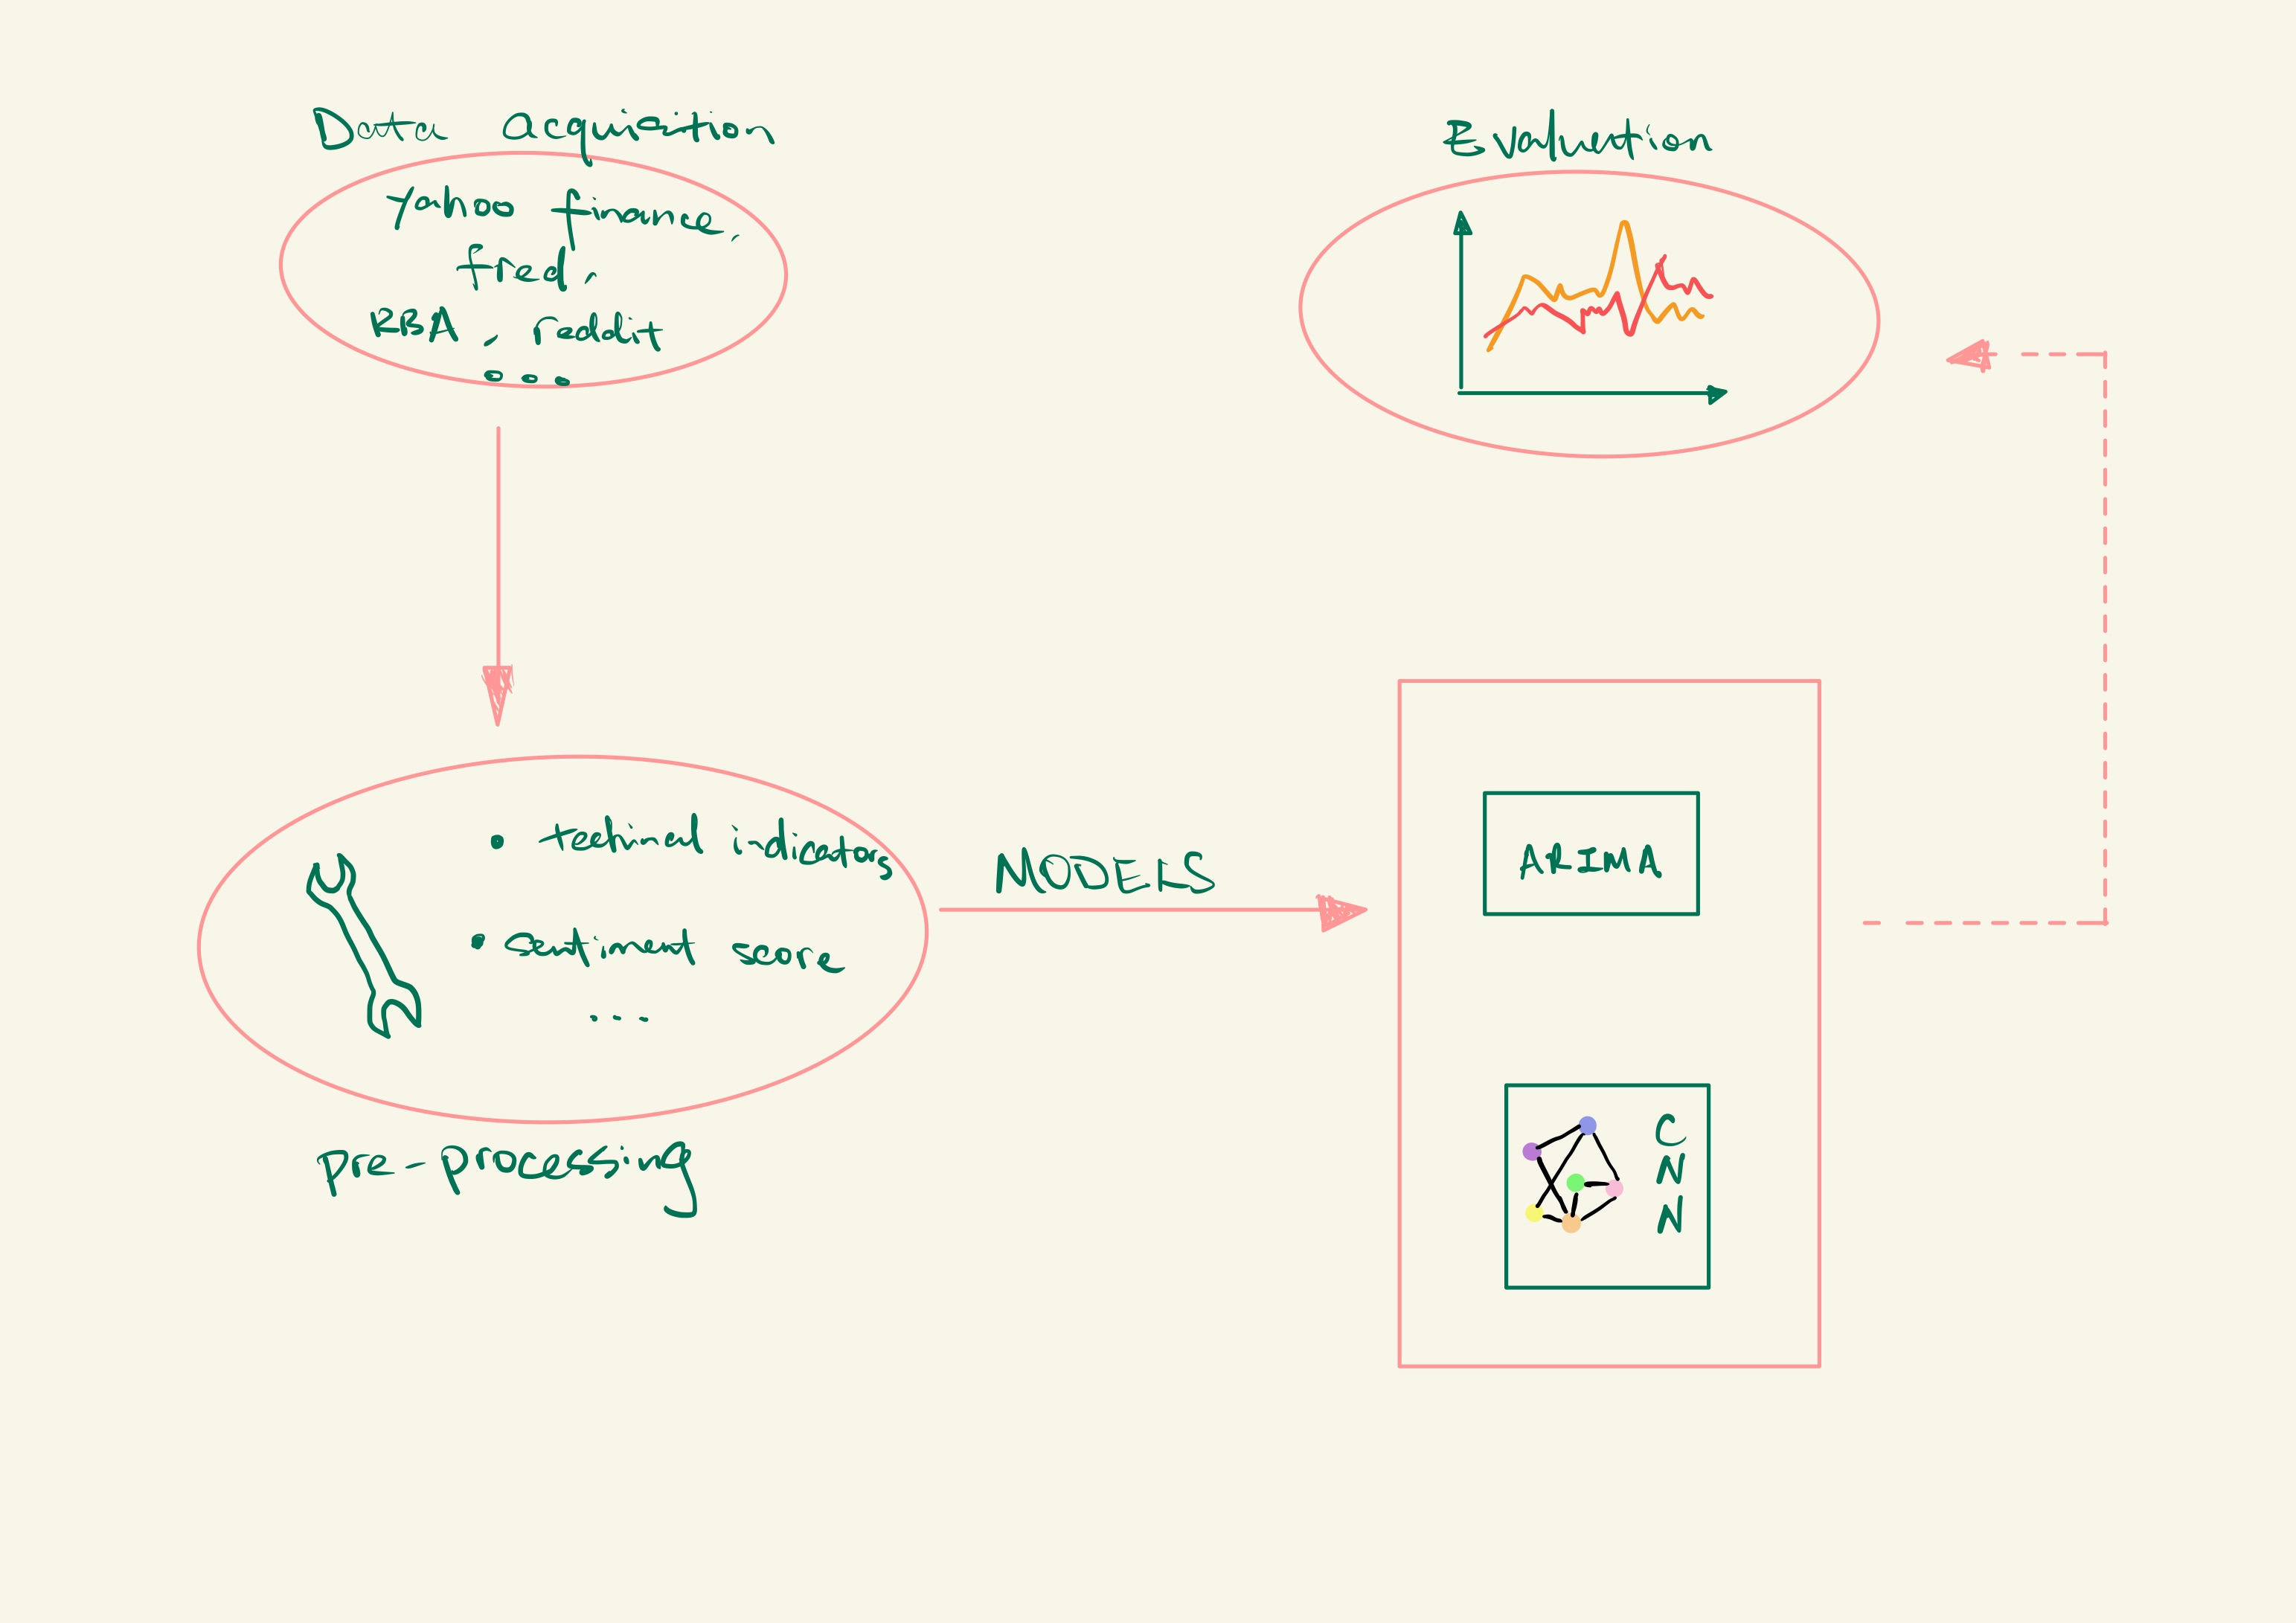 Data acquisition
Yahoo finance,
fred,
RBA, reddit
...
Evaluation
• techinal indicators
• sentiment score
...
MODELS
pre-processing
ARIMA
C
N
N